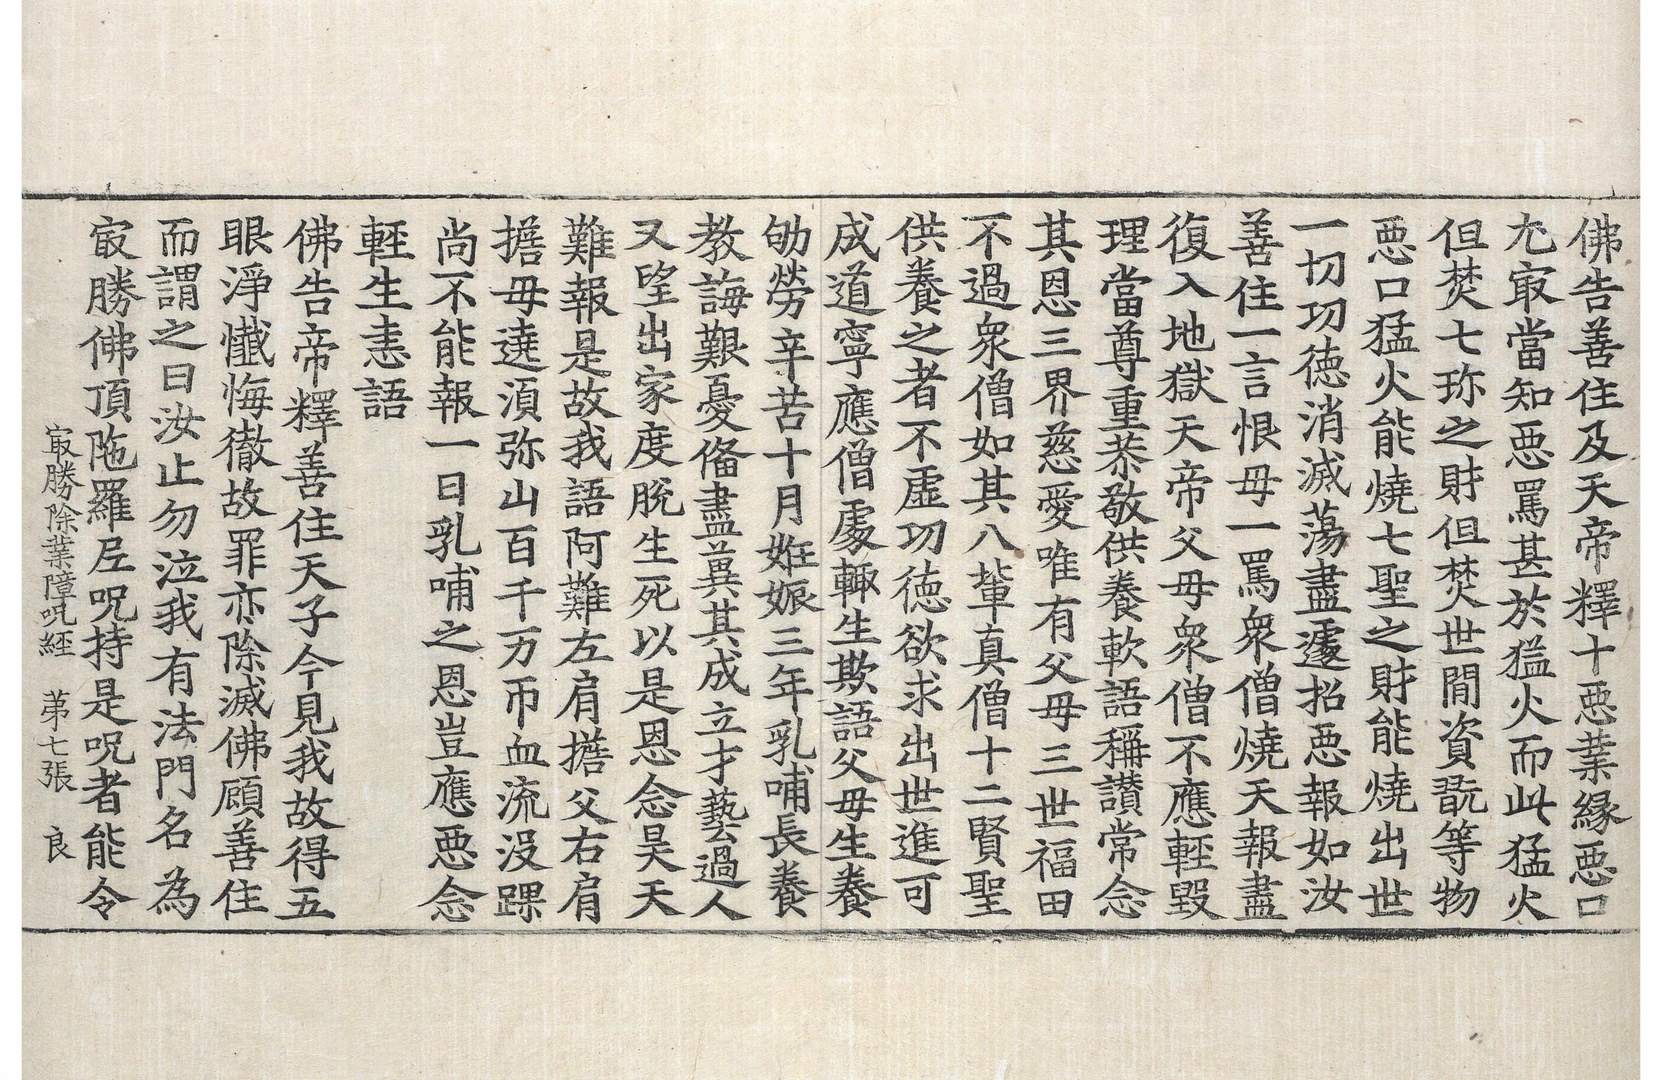 佛告善住及天帝釋十惡業緣惡口
尤㝡當知惡罵甚於猛火而此猛火
但焚七珎之財但焚世間資翫等物
惡口猛火能燒七聖之財能燒出世
一切功德消滅蕩盡遽招惡報如汝
善住一言恨母一罵衆僧燒天報盡
復入地獄天帝父母衆僧不應輕毀
理當尊重恭敬供養軟語稱讃常念
其恩三界慈愛唯有父母三世福田
不過衆僧如其八輩真僧十二賢聖
供養之者不虛功德欲求出世進可
成道寧應僧處輙生欺語父母生養
劬勞辛苦十月姙娠三年乳哺長養
教誨艱憂俻盡兾其成立才藝過人
又望出家度脫生死以是恩念昊天
難報是故我語阿難左肩擔父右肩
擔母遶湏弥山百千万帀血流沒踝
尚不能報一日乳哺之恩豈應惡念
輕生恚語
佛告帝釋善住天子今見我故得五
眼淨懺悔徹故罪亦除滅佛顧善住
而謂之曰汝止勿泣我有法門名為
㝡勝佛頂陁羅尼呪持是呪者能令
㝡勝除業障呪經 苐七張 良